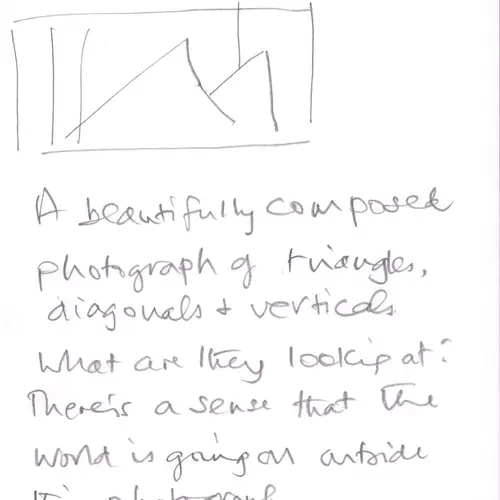 A beautifully composed
photograph of triangles,
diagonals + verticals
What are they looking at?
There's a sense that the
world is going on outside
photograph